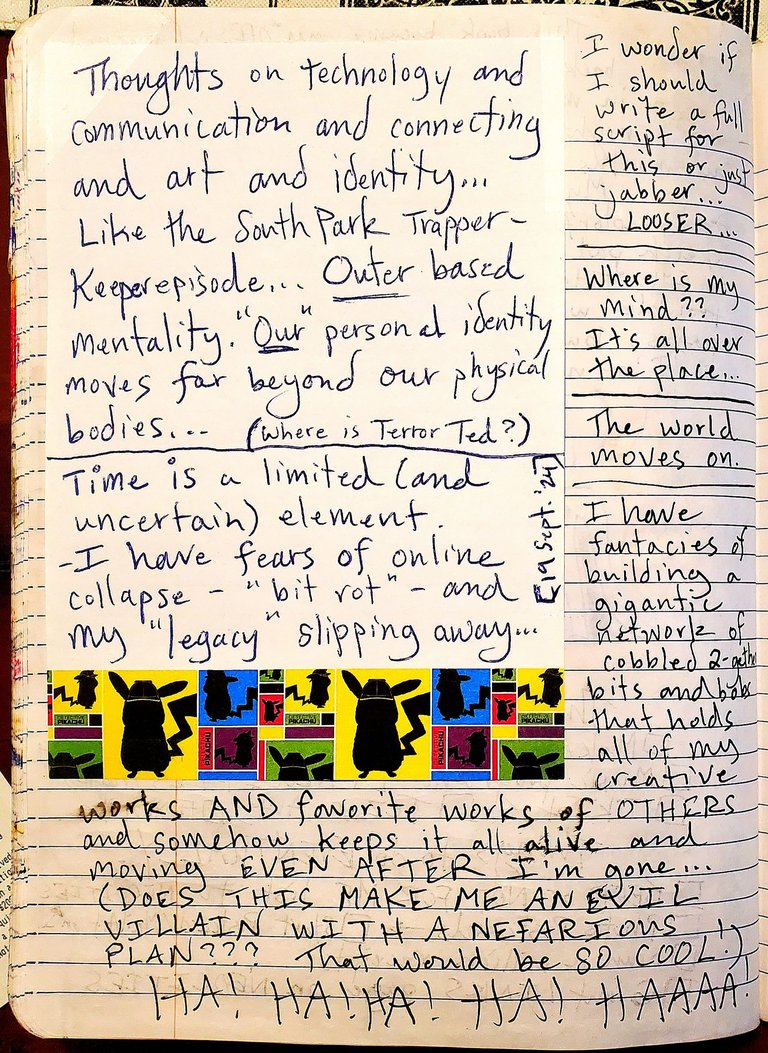 Thoughts on technology and
communication and connecting
and art and identity...
Like the South Park Trapper-
Keeper episode... Outer based
mentality. "Our" personal identity
moves far beyond our physical
bodies... (Where is Terror Ted?)
Time is a limited (and
uncertain) element.
-I have fears of online
collapse - "bit rot" - and
my "legacy" slipping away...
[19 Sept. '24]
DETECTIVE
PIKACHU
DETECTIVE
PIKACHU
DETECTIVE
PIKACHU
DETECTIVE
PIKACHU
I wonder if
I should
write a full
script for
this or just
jabber...
LOOSER...
Where is my
mind??
It's all over
the place...
The world
moves on.
I have
fantacies of
building a
gigantic
network of
cobbled 2-gether
bits and bobs
that holds
all of my
creative
works AND favorite works of OTHERS
and somehow keeps it all alive and
moving EVEN AFTER I'm gone...
(DOES THIS MAKE ME AN EVIL
VILLAIN WITH A NEFARIOUS
PLAN??? That would be SO COOL!)
HA! HA! HA! HA! HAAAA!